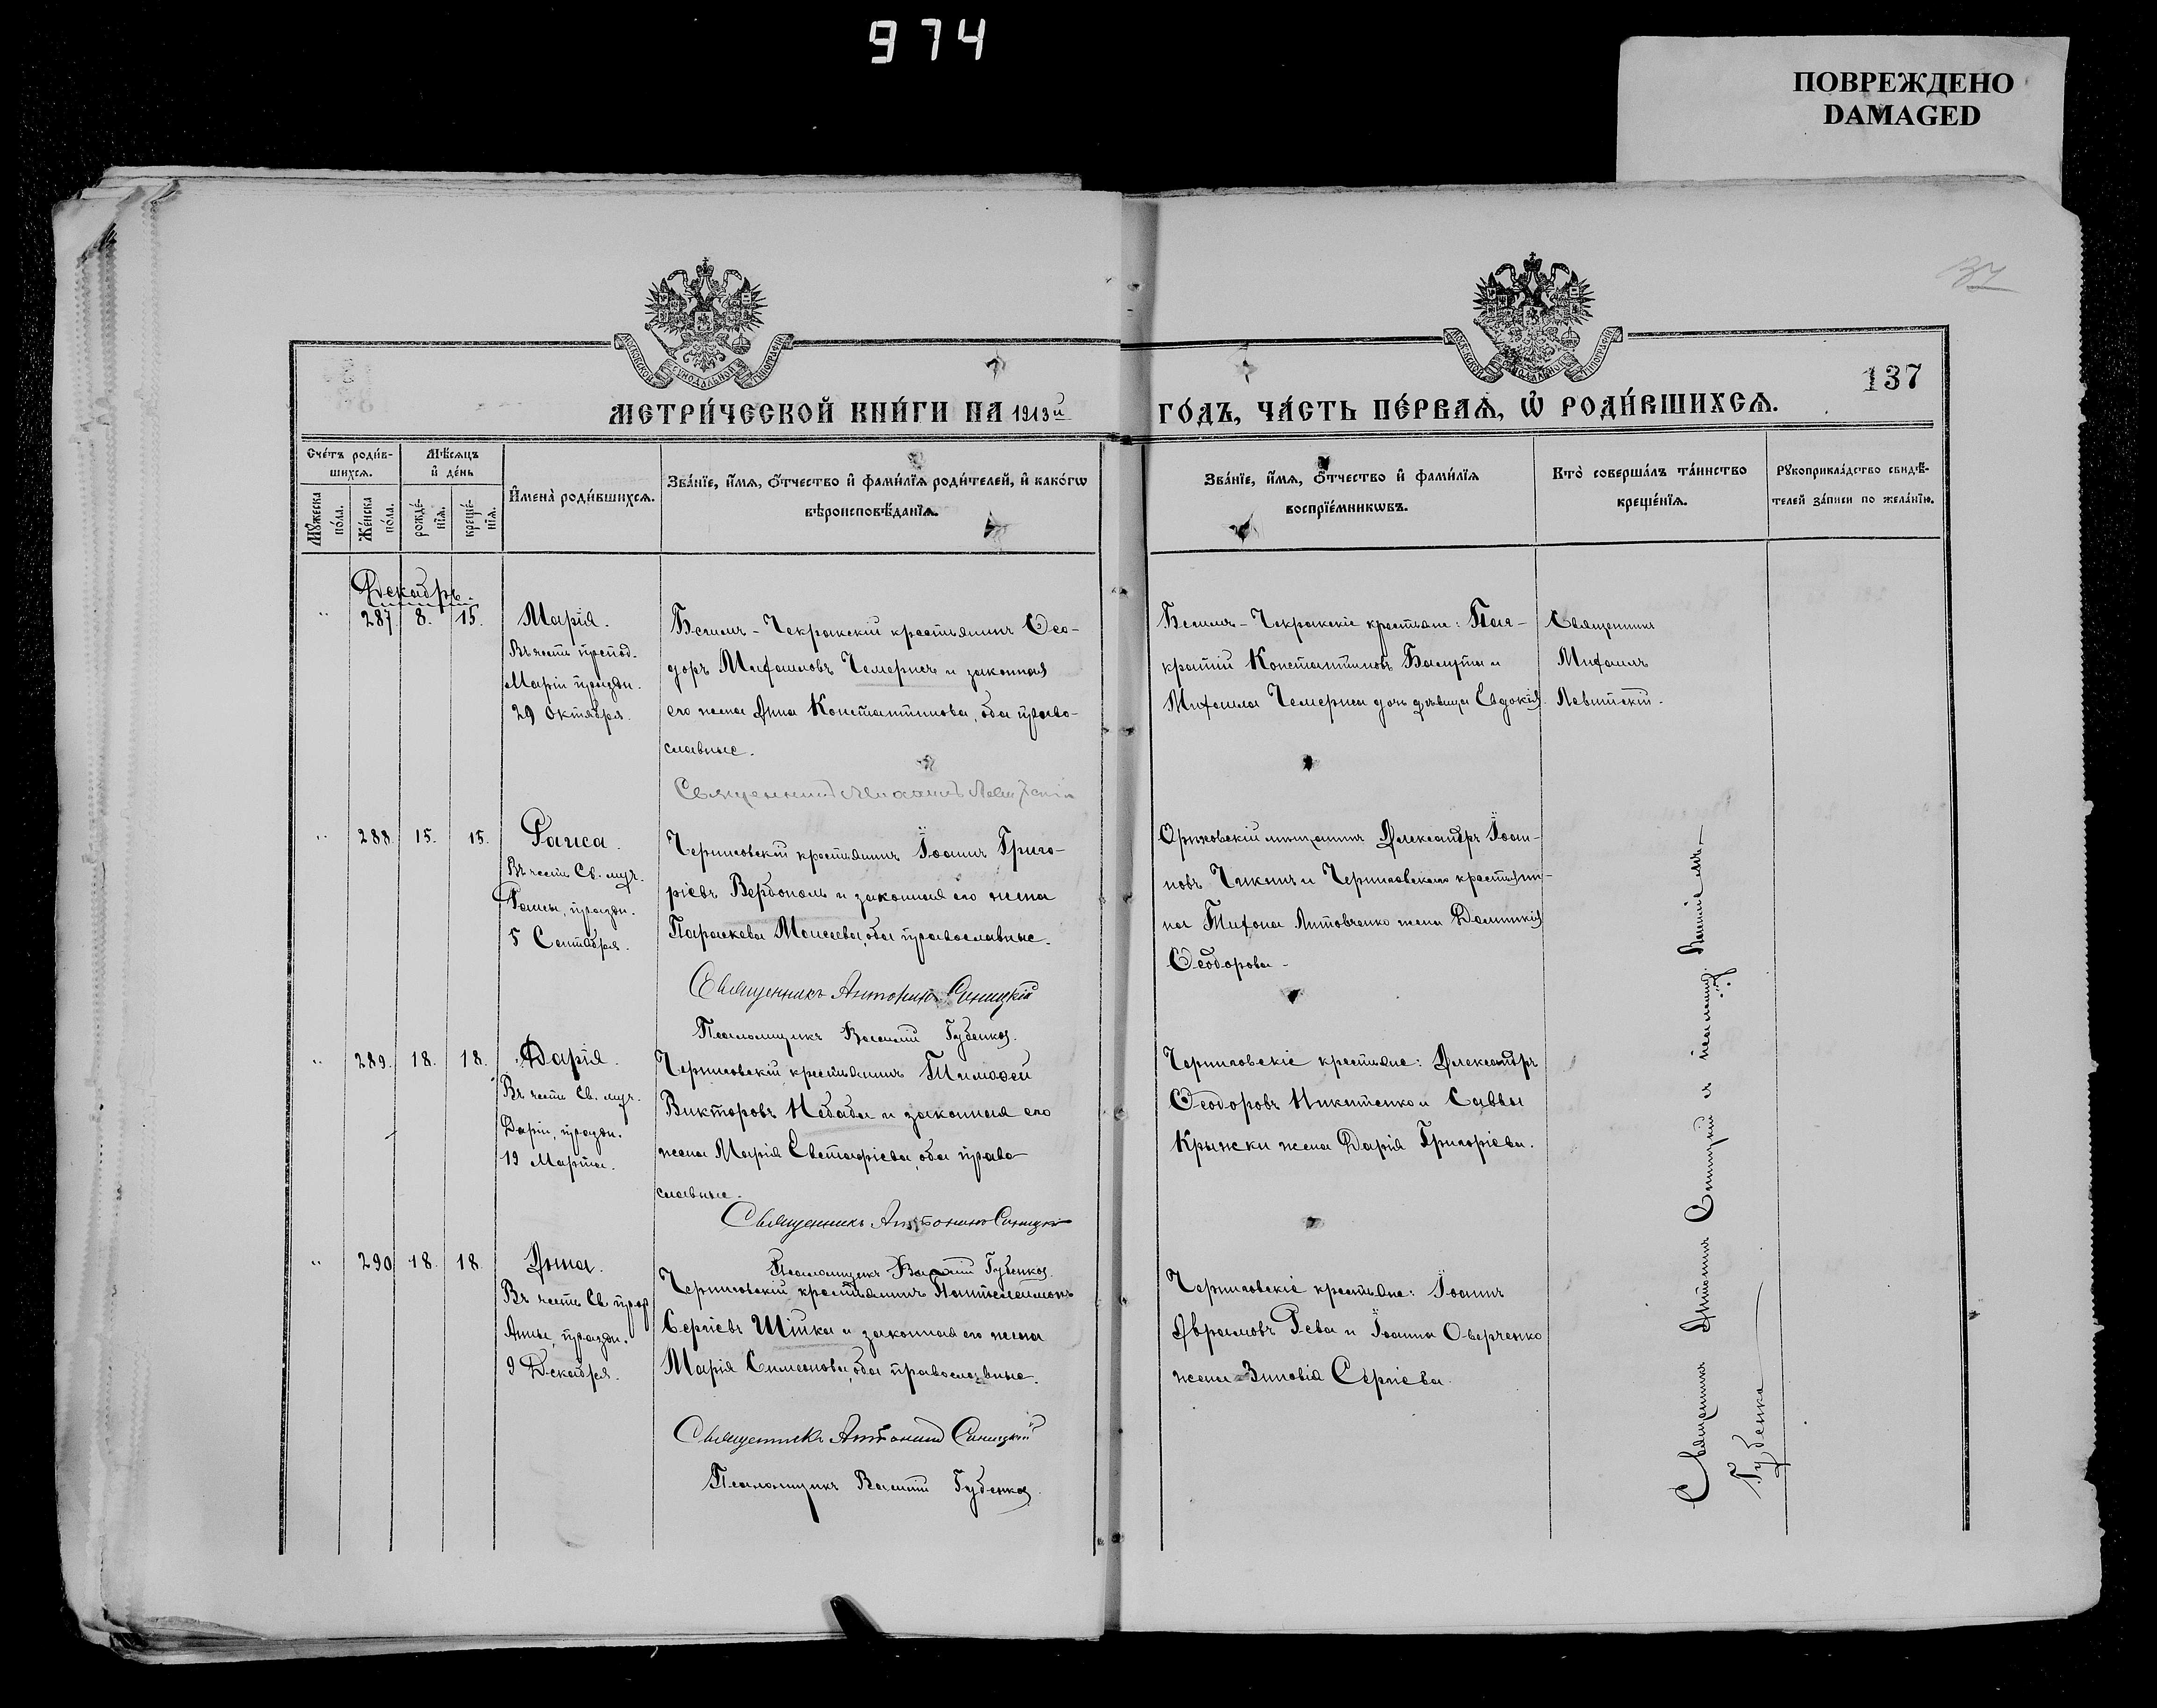 974
ПОВРЕЖДЕНО
DAMAGED
37
137
МОСКОВСКОЙ СѴНОДАЛЬНОЙ ТИПОГРАФІИ
МОСКОВСКОЙ СѴНОДАЛЬНОЙ ТИПОГРАФІИ
МЕТРИ́ЧЕСКОЙ КНИ́ГИ НА 1913й ГО́ДЪ, ЧА́СТЬ ПЕ́РВАѦ, Ѡ РОДИ́ВШИХСѦ.
Сче́тъ роди́в-
шихсѧ.
Мꙋжеска по́ла.
Же́нска по́ла.
Мѣ́сѧцъ и де́нь
рожде́-
нїѧ.
креще́-
нїѧ.
И҆мена̀ роди́вшихсѧ.
Зва́нїе, и҆́мѧ, ѻ҆́тчество и҆ фами́лїѧ роди́телей, и҆ како́гѡ
вѣроисповѣ́данїѧ.
Зва́нїе, и҆́мѧ, ѻ҆́тчество и҆ фами́лїѧ
воспрїе́мникѡвъ.
Кто̀ соверша́лъ та́инство
креще́нїѧ.
Рꙋкоприкла́дство свидѣ́-
телей за́писи по жела́нїю.
Декабрь.
" 287 8. 15.
Марія.
Въ честь препод.
Маріи праздн.
29 Октября.
Бегимъ-Чекракскій крестьянинъ Ѳео-
доръ Михаиловъ Чемерисъ и законная
его жена Анна Константинова, оба право-
славные.
Священникъ Михаилъ Левитскій
Бегимъ-Чекракскіе крестьяне: Пан-
кратій Константиновъ Балута и
Михаила Чемериса дочь дѣвица Евдокія.
Священникъ
Михаилъ
Левитскій.
" 288. 15. 15.
Раиса.
Въ честь Св. муч.
Раисы, праздн.
5 Сентября.
Черниговскій крестьянинъ Іоаннъ Григо-
ріевъ Верболозъ и законная его жена
Параскева Моисеева, оба православные.
Священникъ Антонинъ Синицкій
Псаломщикъ Василій Губенко.
Орѣховскій мѣщанинъ Александръ Іоан-
новъ Чикинъ и Черниговскаго крестьяни-
на Тихона Литовченко жена Домникія
Ѳеодорова.
" 289. 18. 18.
Дарія.
Въ честь Св. муч.
Даріи, праздн.
19 Марта.
Черниговскій крестьянинъ Тимоѳей
Викторовъ Небаба и законная его
жена Марія Евстафіева, оба право-
славные.
Священникъ Антонинъ Синицкій
Псаломщикъ Василій Губенко.
Черниговскіе крестьяне: Александръ
Ѳеодоровъ Никитенко и Саввы
Крыжки жена Дарія Григоріева.
" 290 18. 18.
Анна.
Въ честь Св. прор.
Анны, праздн.
9 Декабря.
Черниговскій крестьянинъ Пантелеимонъ
Сергіевъ Шішка и законная его жена
Марія Симеонова, оба православные.
Священникъ Антонинъ Синицкій
Псаломщикъ Василій Губенко.
Черниговскіе крестьяне: Іоаннъ
Аврамовъ Рева и Іоанна Оверченко
жена Зиновія Сергіева.
Священникъ Антонинъ Синицкій и псаломщ. Василій
Губенко